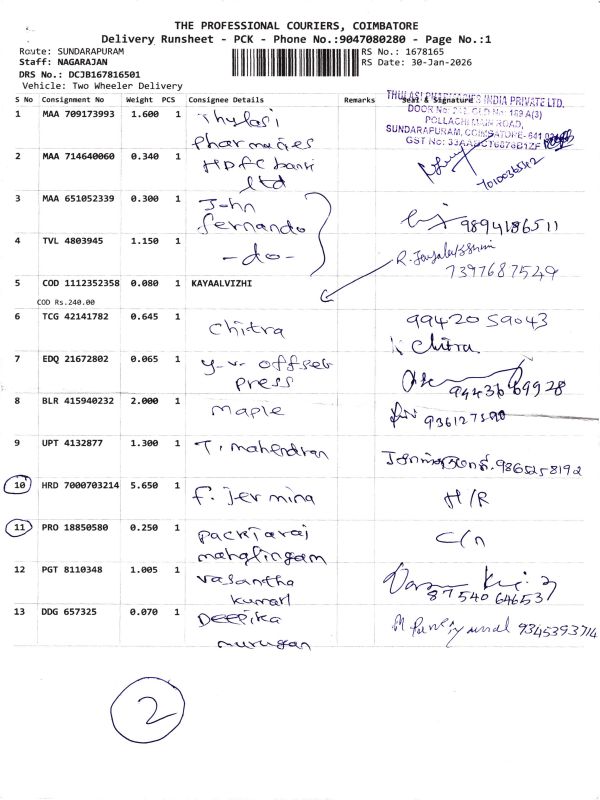 THE PROFESSIONAL COURIERS, COIMBATORE
Delivery Runsheet - PCK - Phone No.:9047080280 - Page No.:1
Route: SUNDARAPURAM
RS No.: 1678165
Staff: NAGARAJAN
RS Date: 30-Jan-2026
DRS No.: DCJB167816501
Vehicle: Two Wheeler Delivery
S No Consignment No Weight PCS Consignee Details Remarks Seal & Signature
THULASI PHARMACIES INDIA PRIVATE LTD.
POLLACHI MAIN ROAD,
SUNDARAPURAM, COIMBATORE-641
1 MAA 709173993 1.600 1 Thylasi
Pharmacies
2 MAA 714640060 0.340 1 HDFC bank
ltd
7010036542
3 MAA 651052339 0.300 1 John
fernando
9894186511
4 TVL 4803945 1.150 1 -do-
7397687549
5 COD 1112352358 0.080 1 KAYAALVIZHI
COD Rs.240.00
6 TCG 42141782 0.645 1 Chitra 9942059043
K Chitra
7 EDQ 21672802 0.065 1 y.v. offset
press
8 BLR 415940232 2.000 1 maple
9 UPT 4132877 1.300 1 T. mahendran 9865258192
10 HRD 7000703214 5.650 1 f. jermina H/R
11 PRO 18850580 0.250 1 packiaraj C/n
mahalingam
12 PGT 8110348 1.005 1 vasantha
kumari
8754064653
13 DDG 657325 0.070 1 Deepika
murugan
9345393714
2